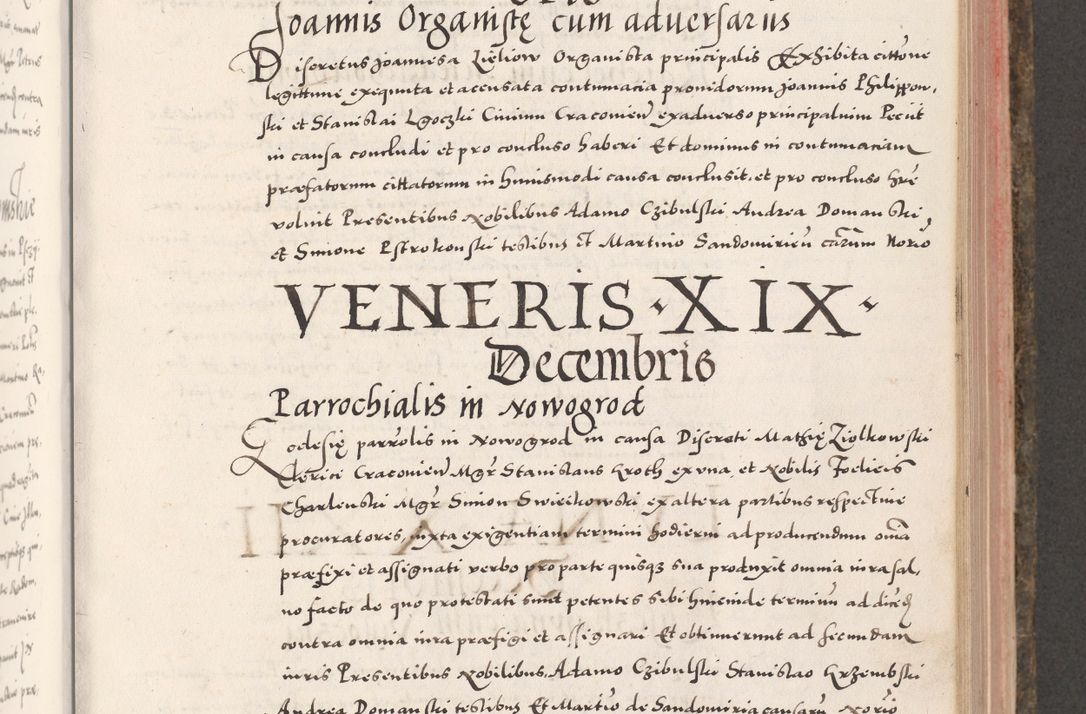 Joannis Organistę cum adversariis
Discretus Joannes a Zieliow Organista principalis Exhibita cittõne
legittime exequuta et accusata contumacia providorum Joannis Philippow,
ski et Stanislai Lgoczki Civium Cracovien̄ ex adverso principalium Peciit
in causa concludi et pro concluso haberi Et dominus in contumaciam
præfatorum cittatorum in huiusmodi causa conclusit, et pro concluso hr̃e
voluit Presentibus Nobilibus Adamo Czibulski Andrea Domanski,
et Simone Pstrokonski testibus Et Martino Sandomirień cãrum Norio
VENERIS · XIX ·
Decembris
Parrochialis in Nowogrod
Ecclesię parrolis in Nowogrod in causa Discreti Mathię Ziolkowski
Clerici Cracovien̄ Mgr̃ Stanislaus Kroth ex una, et Nobilis Foelicis
Charlenski Mgr̃ Simon Swieikowski ex altera partibus respective
procuratores, iuxta exigentiam termini hodierni ad producendum oĩa
præfixi et assignati verbo pro parte quisq3 sua produxit omnia iura sal,
vo facto de quo protestati sunt petentes sibi hincinde terminũ ad dicēd
contra omnia iura præfigi et assignari Et obtinuerunt ad secundam
iuris Presentibus Nobilibus, Adamo Czibulski Stanislao Krzembski
Andrea Domanski testibus Et Martĩo de Sandomiria causarũ Norio